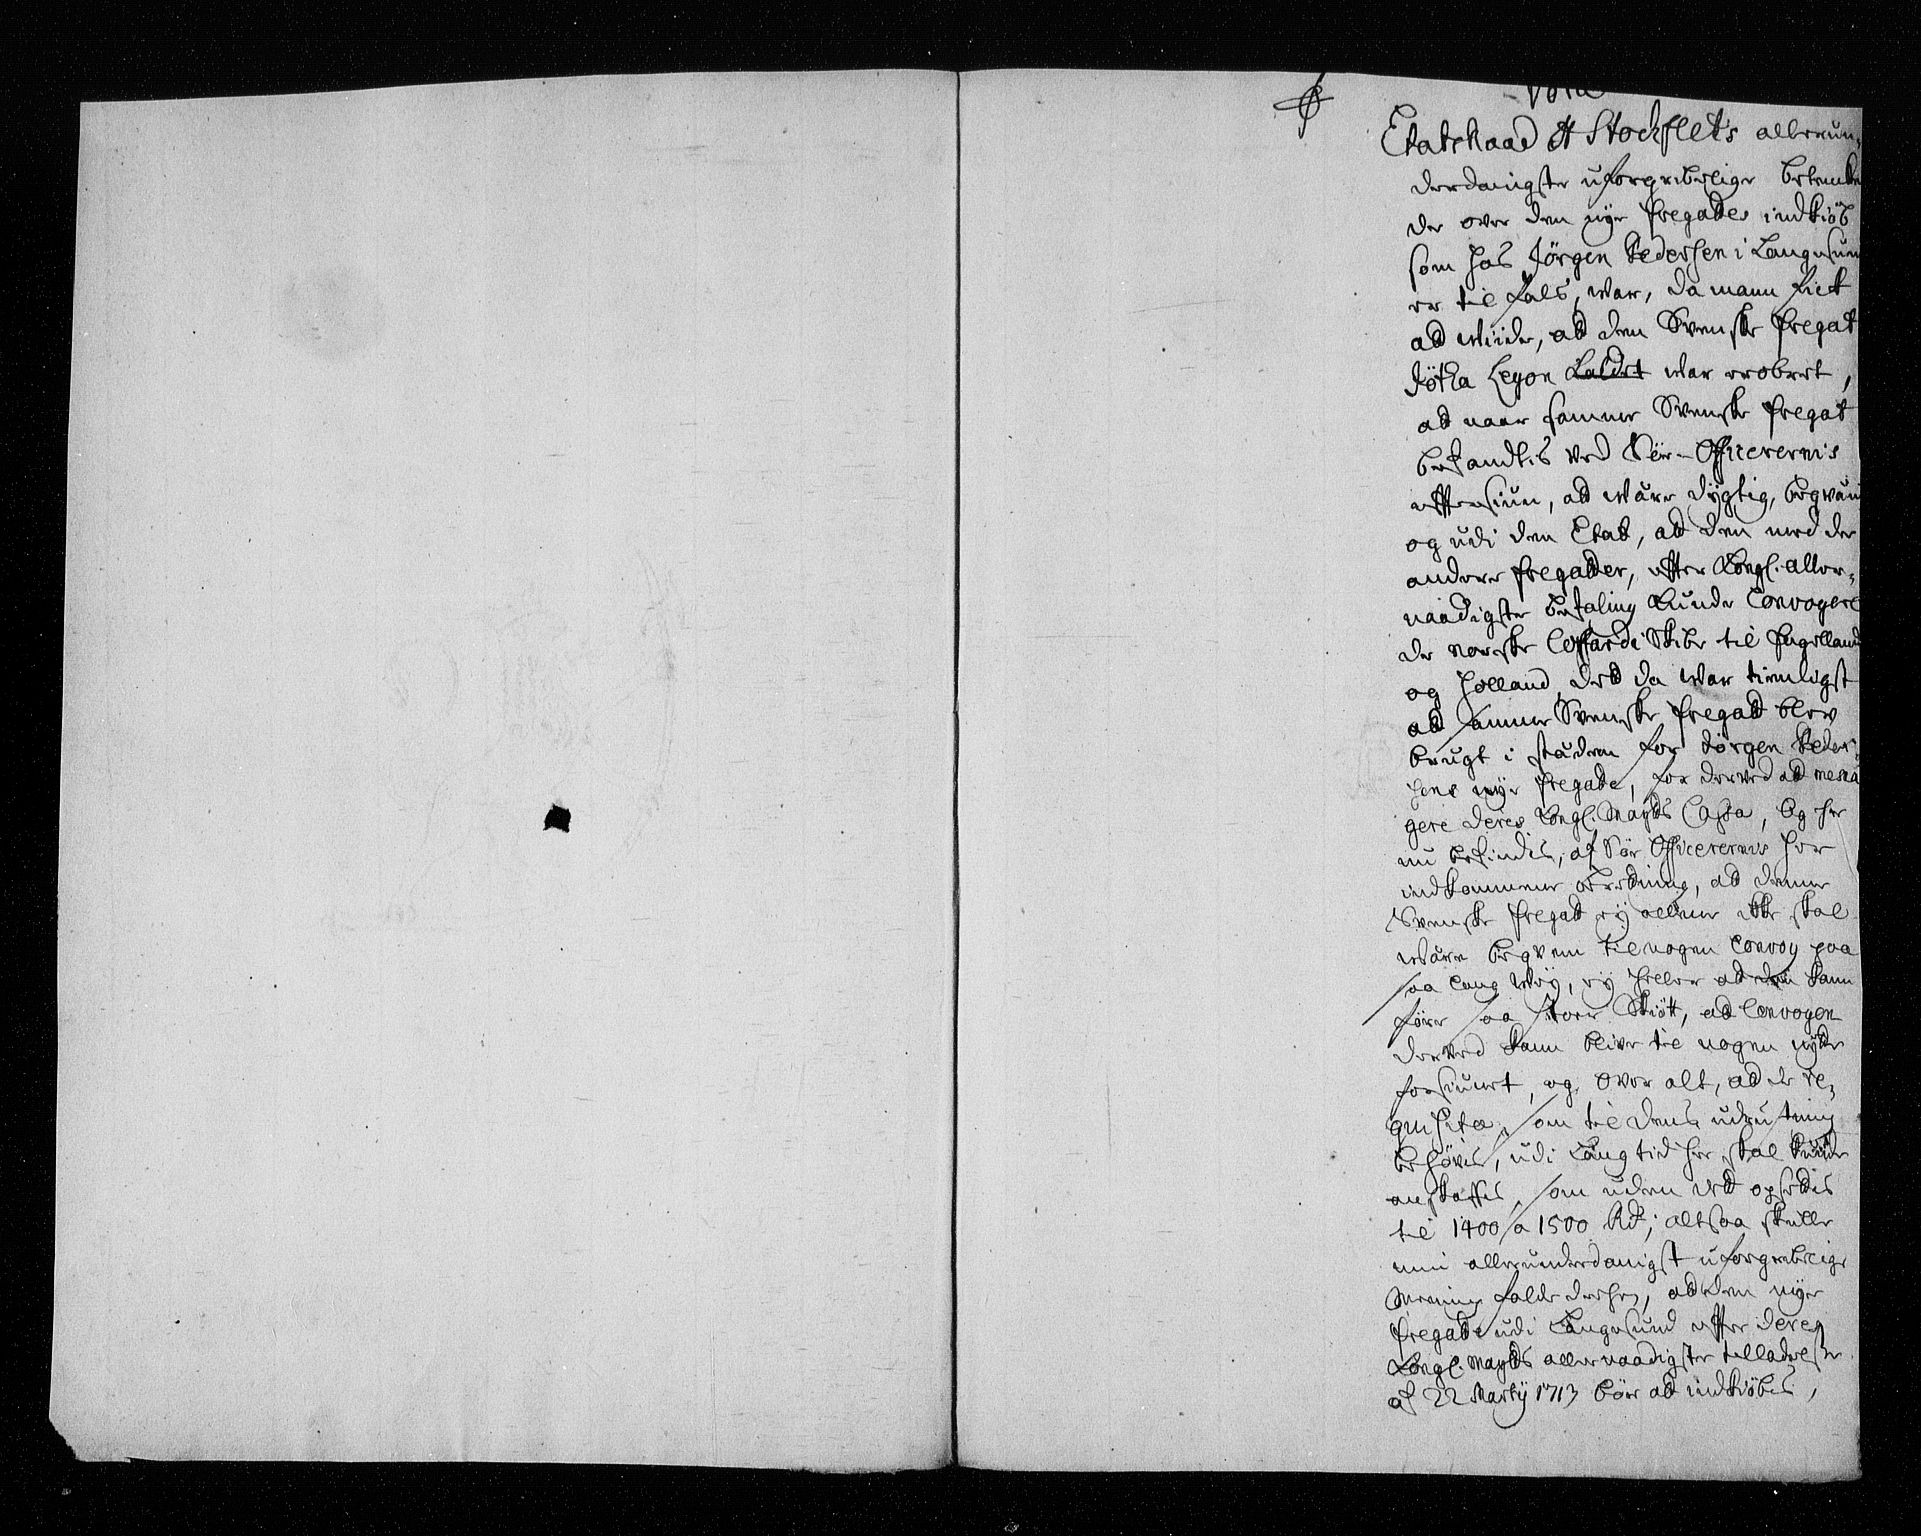 Etatsraad H Stockflets allerun-
derdanigste uforgribelige betenken
de over den nye fregades indkiøb
som hos Jörgen Pedersen i Langesun
er til fals, war, da mann fick
ad wiide, ad den Svenske fregat
Götha Leyon war erobret,
ad naar samme Svenske fregat
befandtis ved Søe-Officerernis
effterSiun, ad wære dygtig, beqvem
og udi den Etat, ad den med de
andere fregadder, effter Kongl. aller-
naadigste befaling kunde Convoyere
de norske Coffardi Skibe til Engelland
og Holland, det da war tienligst
ad samme Svenske fregat blev
brugt i stæden for Jörgen Peder-
sens nye fregade, for derved ad mesna
gere deres Kongl. Mayts Cassa, Og her
nu befindis, af Søe Officerernis her
indkommene beretning, ad denne
Svenske fregat ey allene icke skal
wære beqvem til nogen Convoy paa
saa lang wey, ey heller ad den kann
føre saa stoer Skiøtt, ad Convoyen
derved kann blive til nogen nytte
forsiunet, og over alt, ad de re-
quisita, som til dens udrustning
behøves, udi lang tid her skal kunde
anskaffis, som uden det opsettis
til 1400 a 1500 Rd; altsaa skulle
min allerunderdanigst uforgribelige
Meening falde derhen, ad den nye
fregade udi Langesund effter deres
Kongl. Mayts allernaadigste tilladelse
af 22 Martij 1713 bör ad indkiöbes,